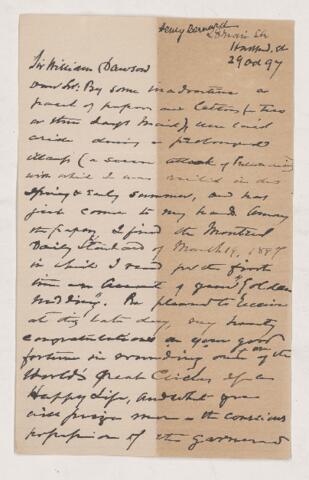 Henry Barnard
28 Main St
Hartford, Ct
29 Oct 97
Sir William Dawson
Dear Sir: By some inadvertence a
parcel of papers and letters (two
or three days' mail), was laid
aside during a prolonged
illness (a severe attack of Pneumonia)
with which I was visited in the
Spring & early summer, and has
just come to my hand. Among
the papers, I find the Montreal
Daily Standard of March 19, 1897
in which I read for the first
time an account of your "Golden
Wedding". Be pleased to receive
at this late day, my hearty
congratulations on your good
fortune in rounding out one of the
World's Great Circles of a
Happy Life, and what you
will prize more – the conscious
possession of the garnered